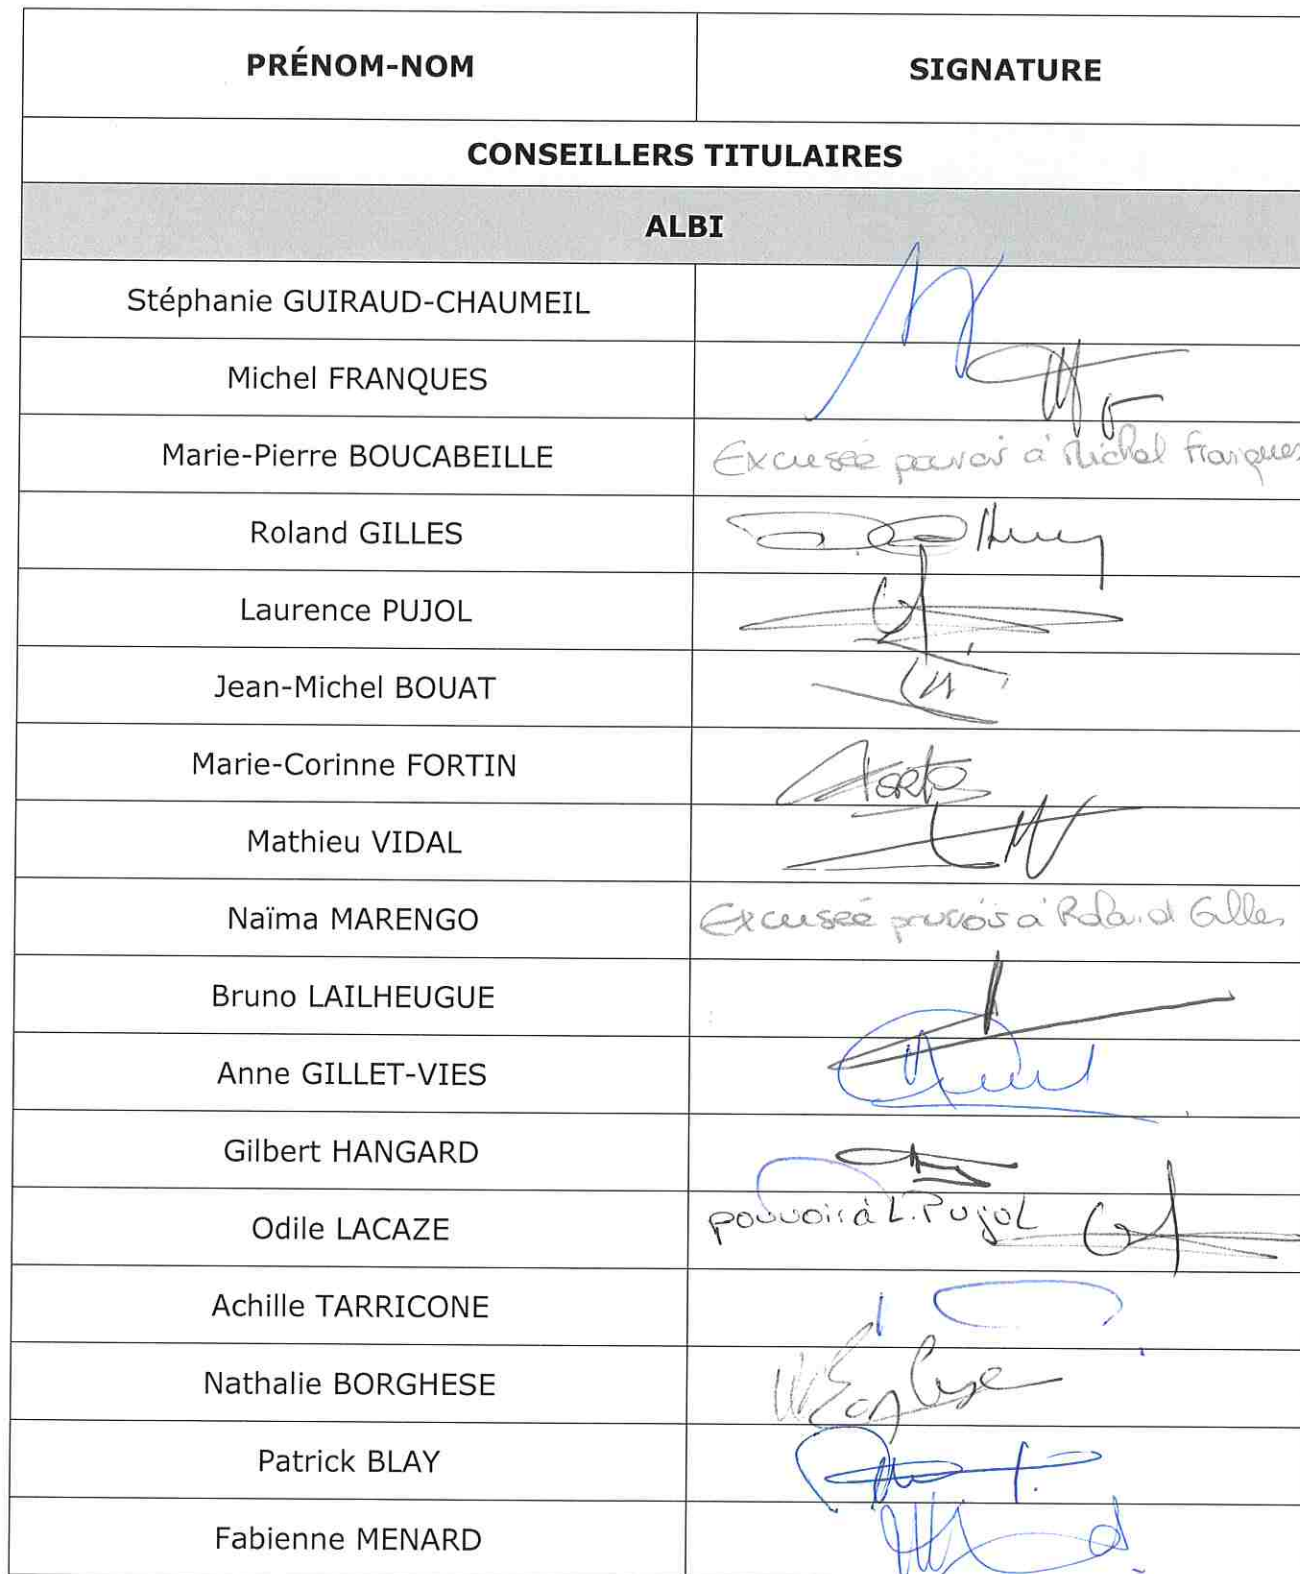 PRÉNOM-NOM
SIGNATURE
CONSEILLERS TITULAIRES
ALBI
Stéphanie GUIRAUD-CHAUMEIL
Michel FRANQUES
Marie-Pierre BOUCABEILLE
Excusée pouvoir à Michel Franques
Roland GILLES
Laurence PUJOL
Jean-Michel BOUAT
Marie-Corinne FORTIN
Mathieu VIDAL
Naïma MARENGO
Excusée pouvoir à Roland Gilles
Bruno LAILHEUGUE
Anne GILLET-VIES
Gilbert HANGARD
Odile LACAZE
pouvoir à L. Pujol
Achille TARRICONE
Nathalie BORGHESE
Patrick BLAY
Fabienne MENARD